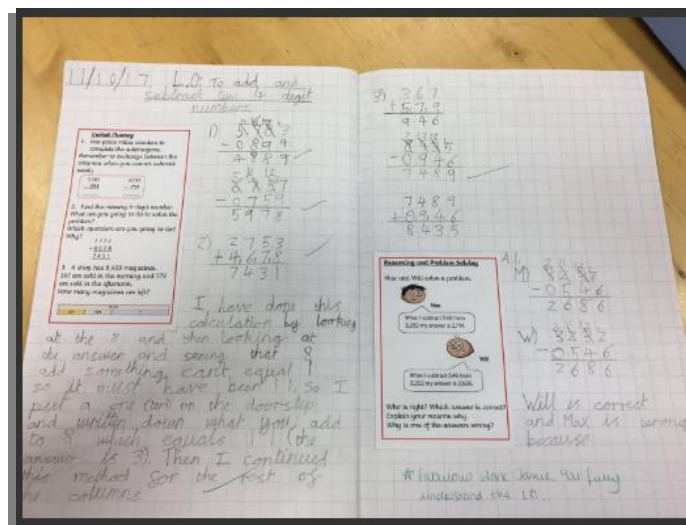 11/10/17 L.O: To add and
subtract two 4 digit
numbers
Verbal Fluency
1. Use place value counters to
complete the subtractions.
Remember to exchange between the
columns when you cannot subtract
easily.
2. Find the missing 4-digit number.
What are you going to do to solve the
problem?
Which operation are you going to do?
Why?
+ 4678
7431
3. A shop has 8,435 magazines.
367 are sold in the morning and 579
are sold in the afternoon.
How many magazines are left?
1)
- 0894
4889
- 0759
5978
2) 2753
+ 4678
7431
I have done this
calculation by looking
at the 8 and then looking at
the answer and seeing that 8
add something can't equal 1
so it must have been 11. So I
put a one (ten) on the doorstep
and written down what you add
to 8 which equals 11 (the
answer is 3). Then I continued
this method for the rest of
the columns
3) 367
+ 579
946
8435
- 0946
7489
7489
+ 0946
8435
Reasoning and Problem Solving
Max and Will solve a problem.
Max
When I subtract 546 from
3,232 my answer is 2,714.
Will
When I subtract 546 from
3,232 my answer is 2,686.
Who is right? Which answer is correct?
Explain your reasons why.
Why is one of the answers wrong?
M)
- 0546
2686
W) 3232
- 0546
2686
Will is correct
and Max is wrong
because
Fabulous work You fully
understand the LO.